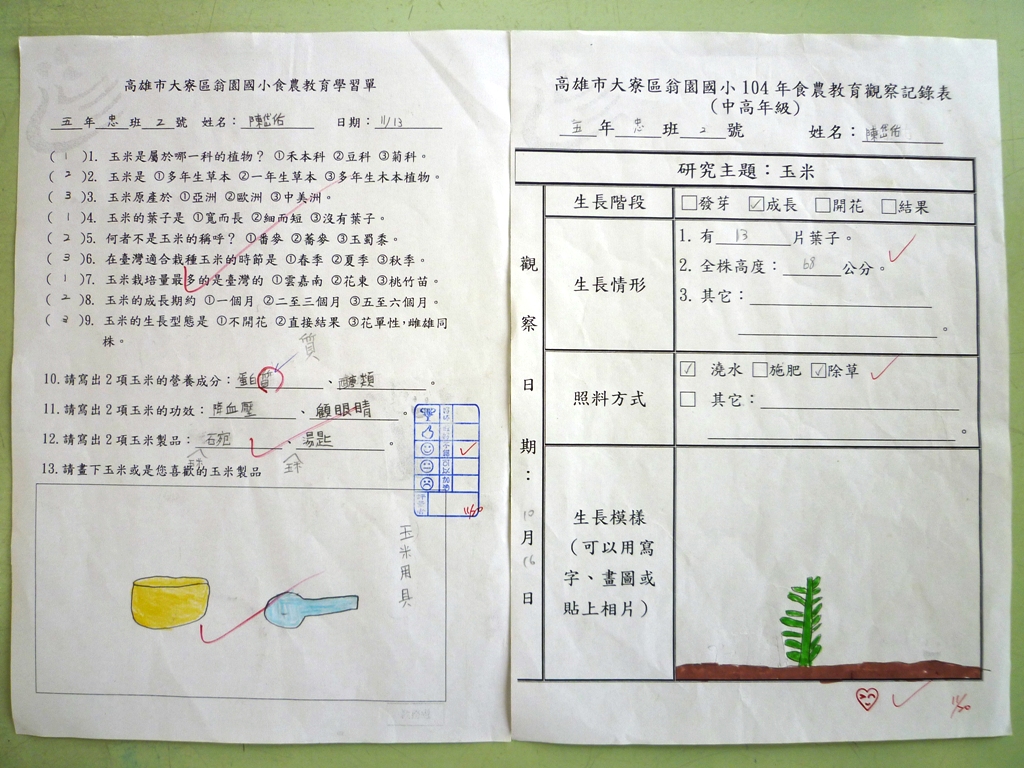 高雄市大寮區翁園國小食農教育學習單
五 年 忠 班 2 號 姓名：陳岱佑 日期：11/13
( 1 )1. 玉米是屬於哪一科的植物？ ①禾本科 ②豆科 ③菊科。
( 2 )2. 玉米是 ①多年生草本 ②一年生草本 ③多年生木本植物。
( 3 )3. 玉米原產於 ①亞洲 ②歐洲 ③中美洲。
( 1 )4. 玉米的葉子是 ①寬而長 ②細而短 ③沒有葉子。
( 2 )5. 何者不是玉米的稱呼？ ①番麥 ②蕎麥 ③玉蜀黍。
( 3 )6. 在臺灣適合栽種玉米的時節是 ①春季 ②夏季 ③秋季。
( 1 )7. 玉米栽培量最多的是臺灣的 ①雲嘉南 ②花東 ③桃竹苗。
( 2 )8. 玉米的成長期約 ①一個月 ②二至三個月 ③五至六個月。
( 3 )9. 玉米的生長型態是 ①不開花 ②直接結果 ③花單性，雌雄同
株。
質
10.請寫出2項玉米的營養成分：蛋白質、醣類。
11.請寫出2項玉米的功效：降血壓、顧眼睛。
12.請寫出2項玉米製品：、湯匙。
13.請畫下玉米或是您喜歡的玉米製品
11/30
玉米用具
高雄市大寮區翁園國小104年食農教育觀察記錄表
（中高年級）
五 年 忠 班 2 號 姓名：陳岱佑
研究主題：玉米
觀察日期：10月16日
生長階段
□發芽 ☑成長 □開花 □結果
生長情形
1. 有 13 片葉子。
2. 全株高度： 68 公分。
3. 其它：
。
照料方式
☑ 澆水 □施肥 ☑除草
□ 其它：
。
生長模樣
（可以用寫
字、畫圖或
貼上相片）
11/30